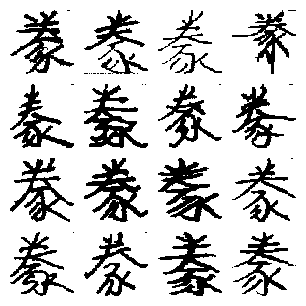 豢豢豢豢
豢豢豢豢
豢豢豢豢
豢豢豢豢